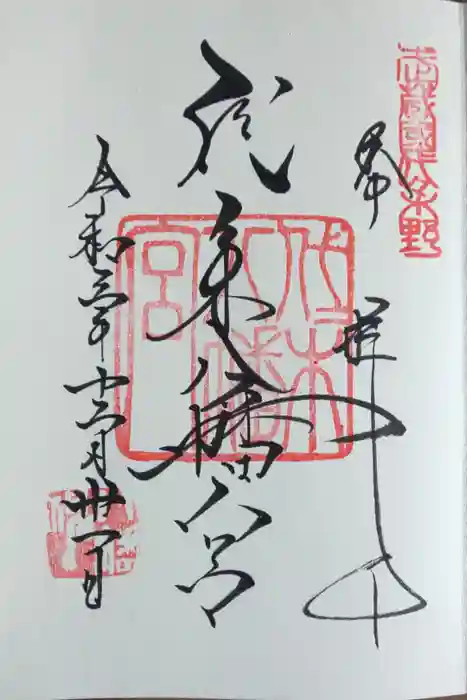 武蔵國代々木野
奉拝
代々木八幡宮
代々木八幡宮
令和三年十二月卅一日